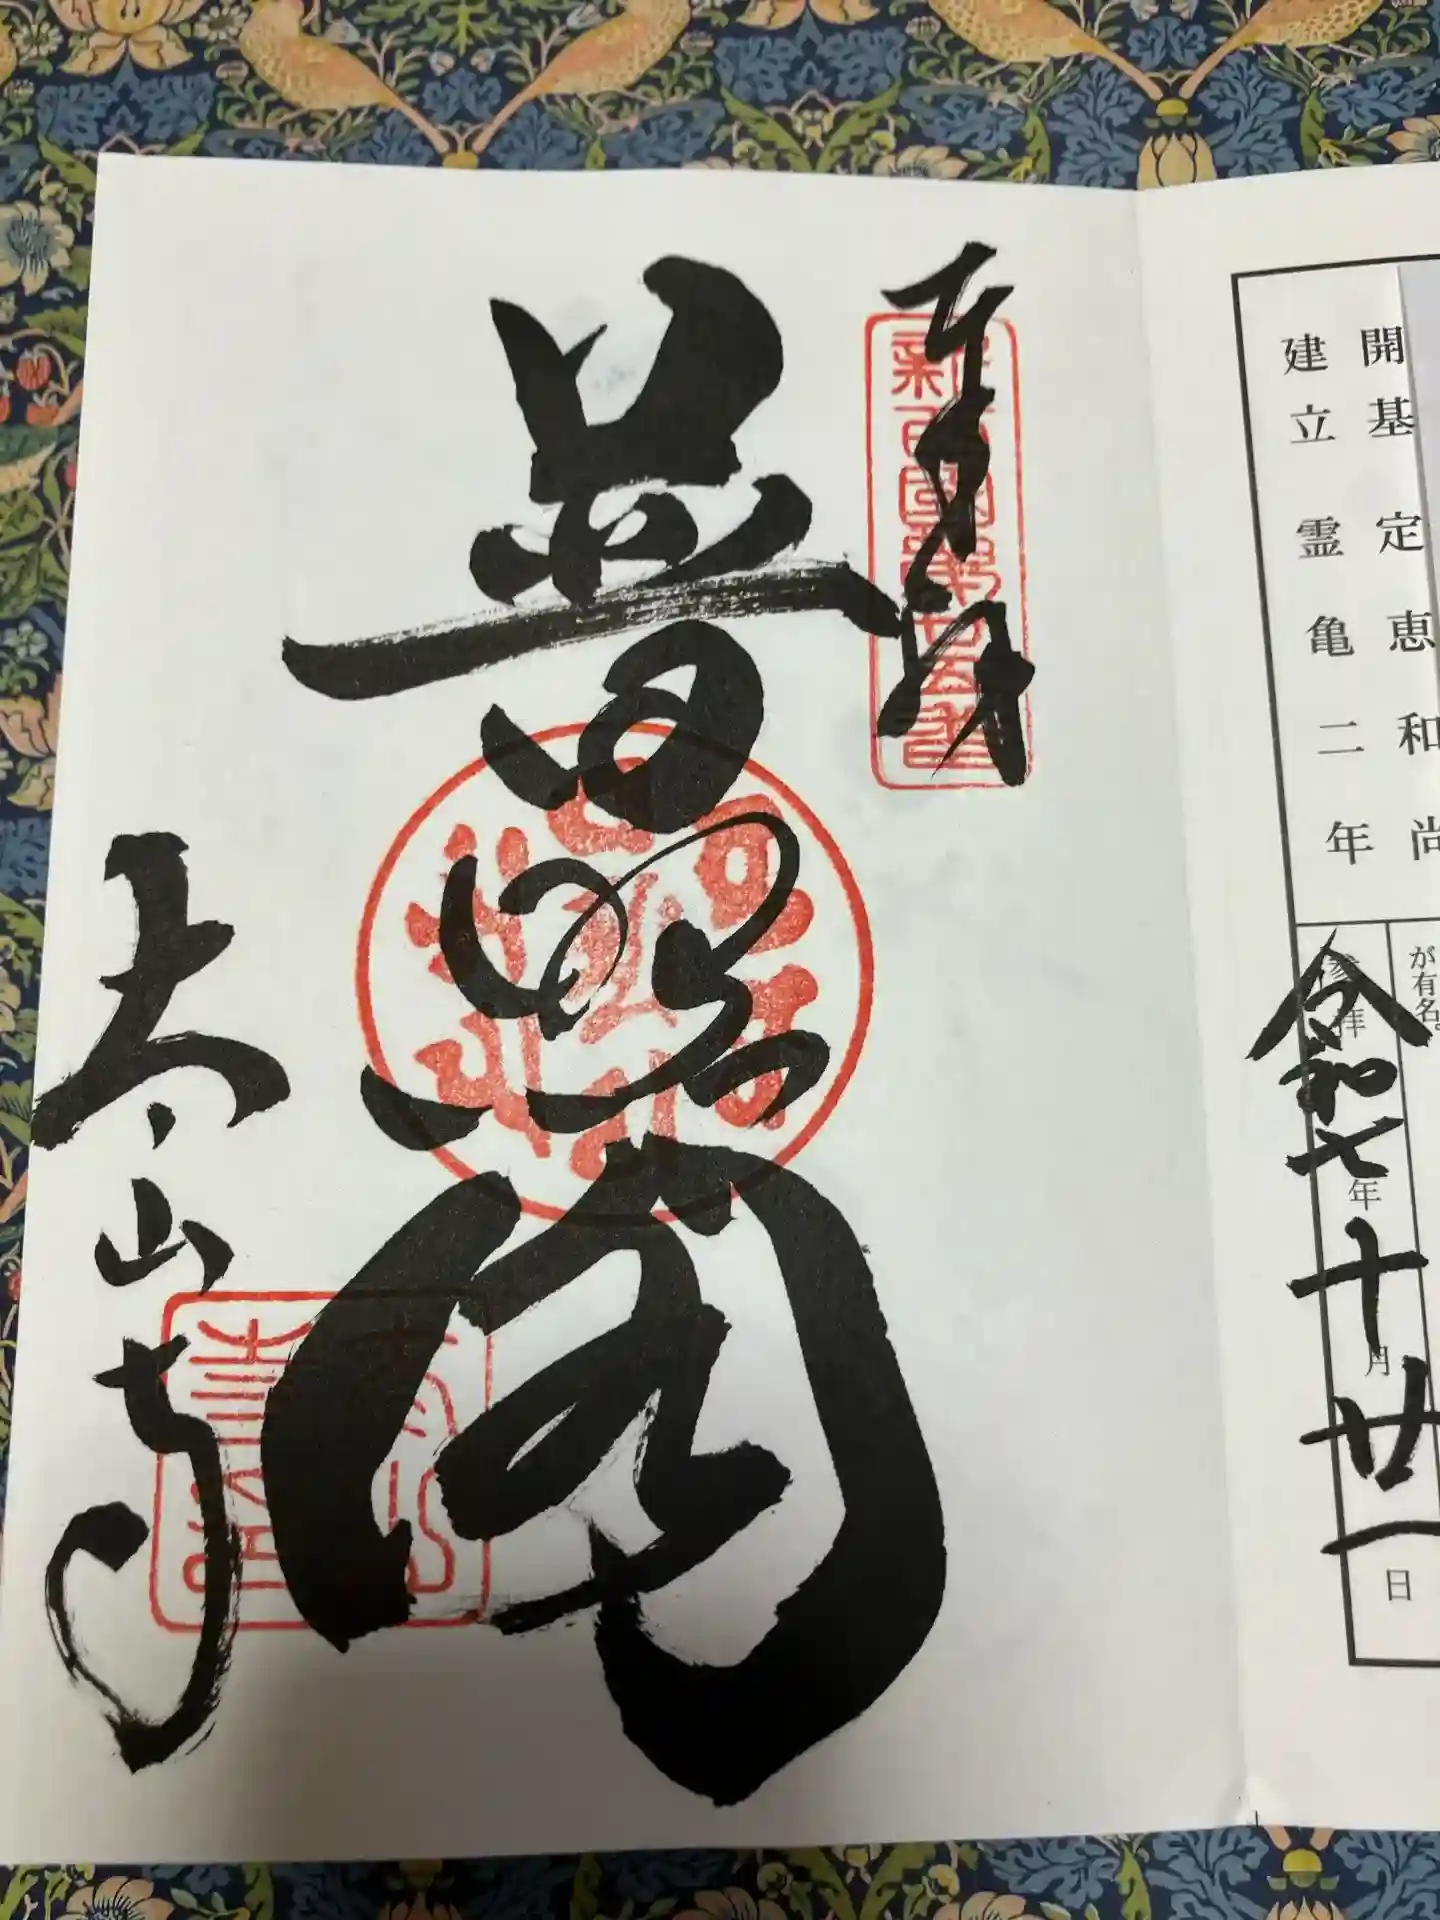 開基 定恵和尚
建立 霊亀二年
が有名。
参拝 令和七年十月廿一日
奉拝
新西国第廿五番
普照閣
太山寺